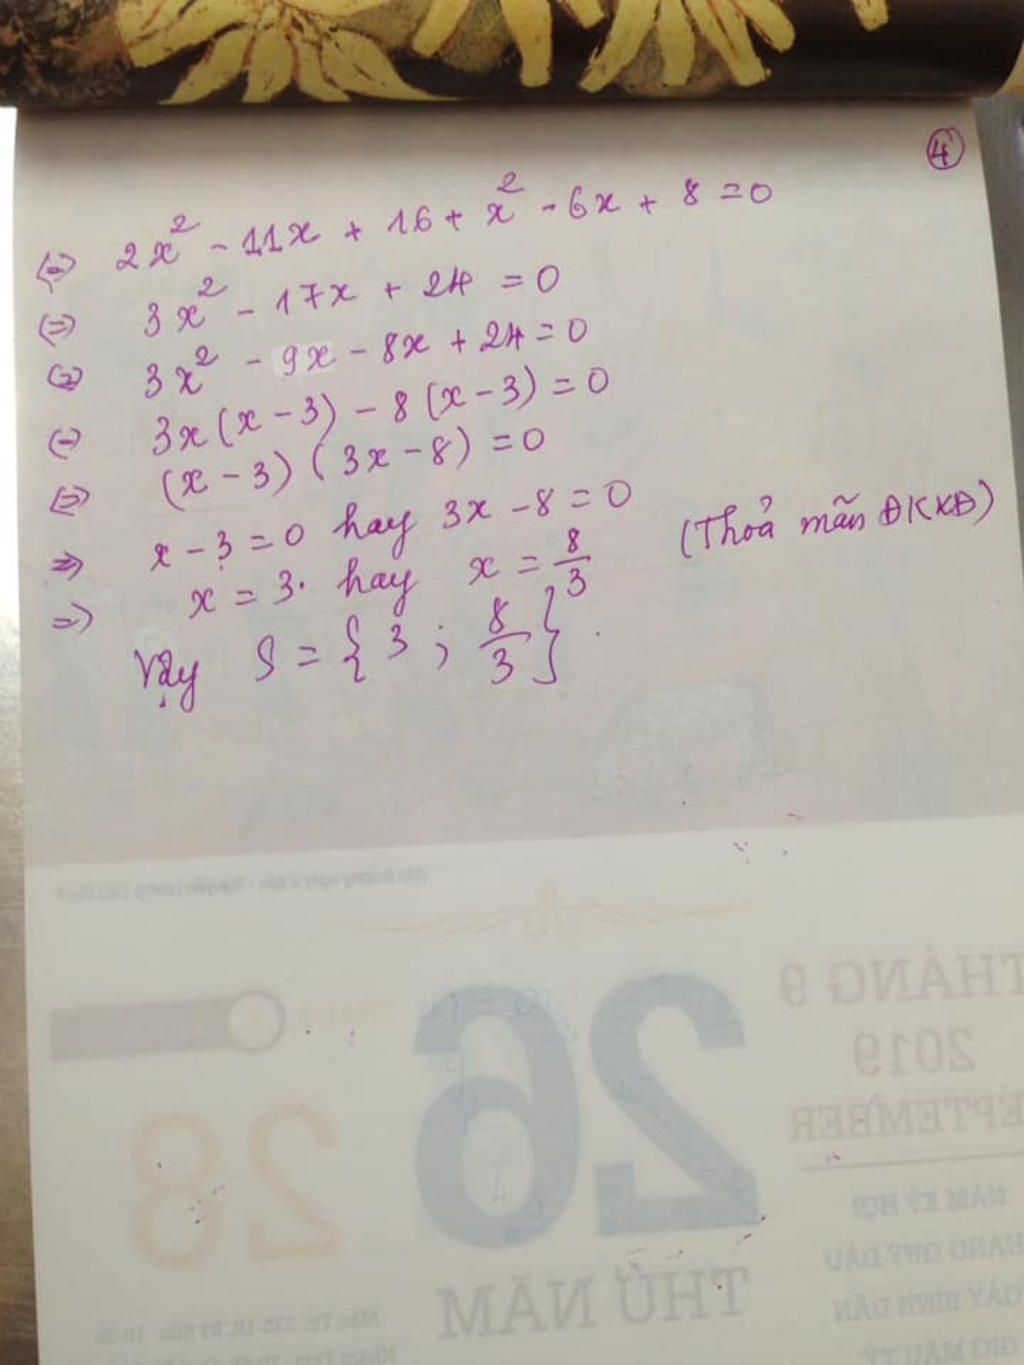 4
(=) 2x² - 11x + 16 + x² - 6x + 8 = 0
(=) 3x² - 17x + 24 = 0
(=) 3x² - 9x - 8x + 24 = 0
(=) 3x(x - 3) - 8(x - 3) = 0
(=) (x - 3)(3x - 8) = 0
=> x - 3 = 0 hay 3x - 8 = 0
=> x = 3. hay x = 8/3 (Thoả mãn ĐKXĐ)
Vậy S = {3 ; 8/3}.
THÁNG 9
2019
SEPTEMBER
26
28
THỨ NĂM
NĂM KỶ HỢI